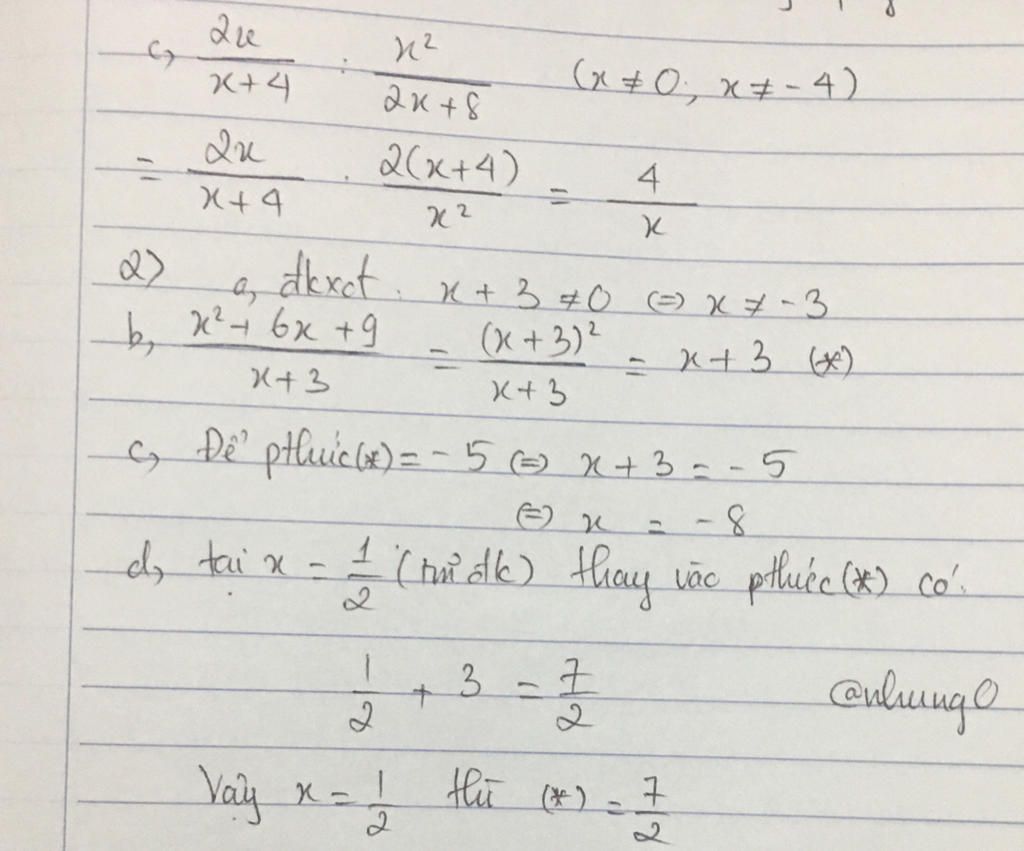 c, 2x/(x+4) : x²/(2x+8) (x ≠ 0; x ≠ -4)
= 2x/(x+4) . 2(x+4)/x² = 4/x
2) a, đkxđ. x + 3 ≠ 0 ⇔ x ≠ -3
b, (x² + 6x + 9)/(x+3) = (x+3)²/(x+3) = x + 3 (*)
c, Để pthức(*) = -5 ⇔ x + 3 = -5
⇔ x = -8
d, tại x = 1/2 (tm đk) thay vào pthức(*) có:
1/2 + 3 = 7/2 @nhung0
Vậy x = 1/2 thì (*) = 7/2